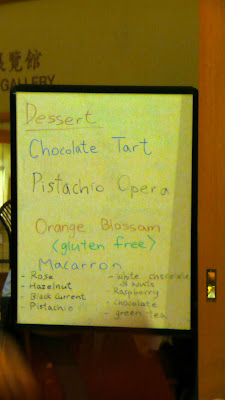 展覽館
GALLERY
Dessert
Chocolate Tart
Pistachio Opera
Orange Blossam
(gluten free)
Macarron
- Rose
- Hazelnut
- Black Current
- Pistachio
- White chocolate
Raspberry
- chocolate
- green tea